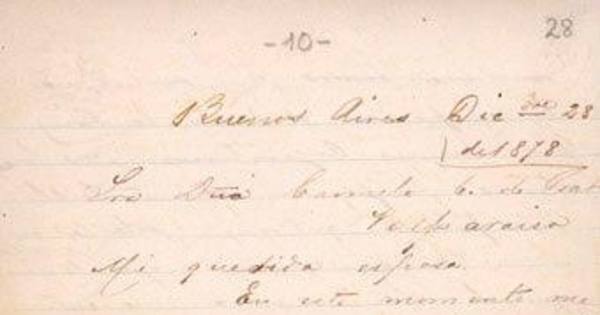 28
-10-
Buenos Aires Dicbre 28
de 1878
Sra Dña Carmela C. de Prat
Valparaiso
Mi querida esposa
En este momento me